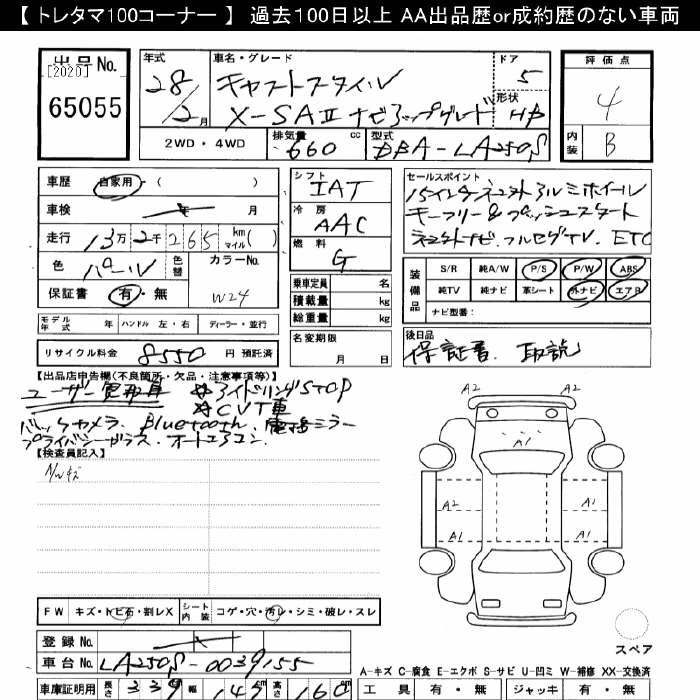 【 トレタマ100コーナー 】 過去100日以上 AA出品歴or成約歴のない車両
出品No.
[2020]
65055
年式
28/2月
車名・グレード
キャストスタイル
X-SAⅡ ナビアップグレード
ドア
5
形状
HB
評価点
4
内装
B
2WD・4WD
排気量 660 cc
型式 DBA-LA250S
車歴 自家用・( )
車検 年 月
走行 13万2千265 km マイル( )
色 パール 色替
カラーNo. W24
保証書 有・無
シフト
IAT
冷房
AAC
燃料
G
乗車定員 名
積載量 kg
総重量 kg
セールスポイント
15インチ純正アルミホイール
キーフリー&プッシュスタート
ナビ、フルセグTV. ETC
装備品
S/R 純A/W P/S P/W ABS
純TV 純ナビ 革シート 外ナビ エアB
ナビ型番:
モデル年式 年 ハンドル 左・右 ディーラー・並行
リサイクル料金 8550 円 預託済
名変期限
月 日
後日品
保証書. 取説
【出品店申告欄(不良箇所・欠品・注意事項等)】
ユーザー買取車 ☆アイドリングSTOP
☆CVT車
バックカメラ. Bluetooth. 電格ミラー
プライバシーガラス. オートエアコン.
【検査員記入】
A2 A2
A1
A2 A1
A1 A1
スペア
FW キズ・トビ石・割レX シート内装 コゲ・穴・汚レ・シミ・破レ・スレ
登録No.
車台No. LA250S-0039155
A-キズ C-腐食 E-エクボ S-サビ U-凹ミ W-補修 XX-交換済
車庫証明用 長さ 339 幅 147 cm 160 cm
工具 有・無 ジャッキ 有・無